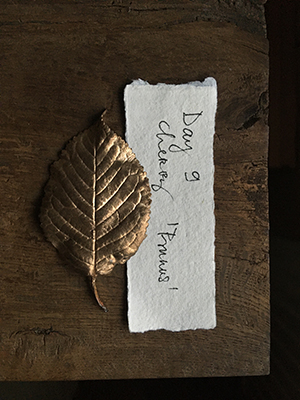 Day 9
cherry 'Prunus'